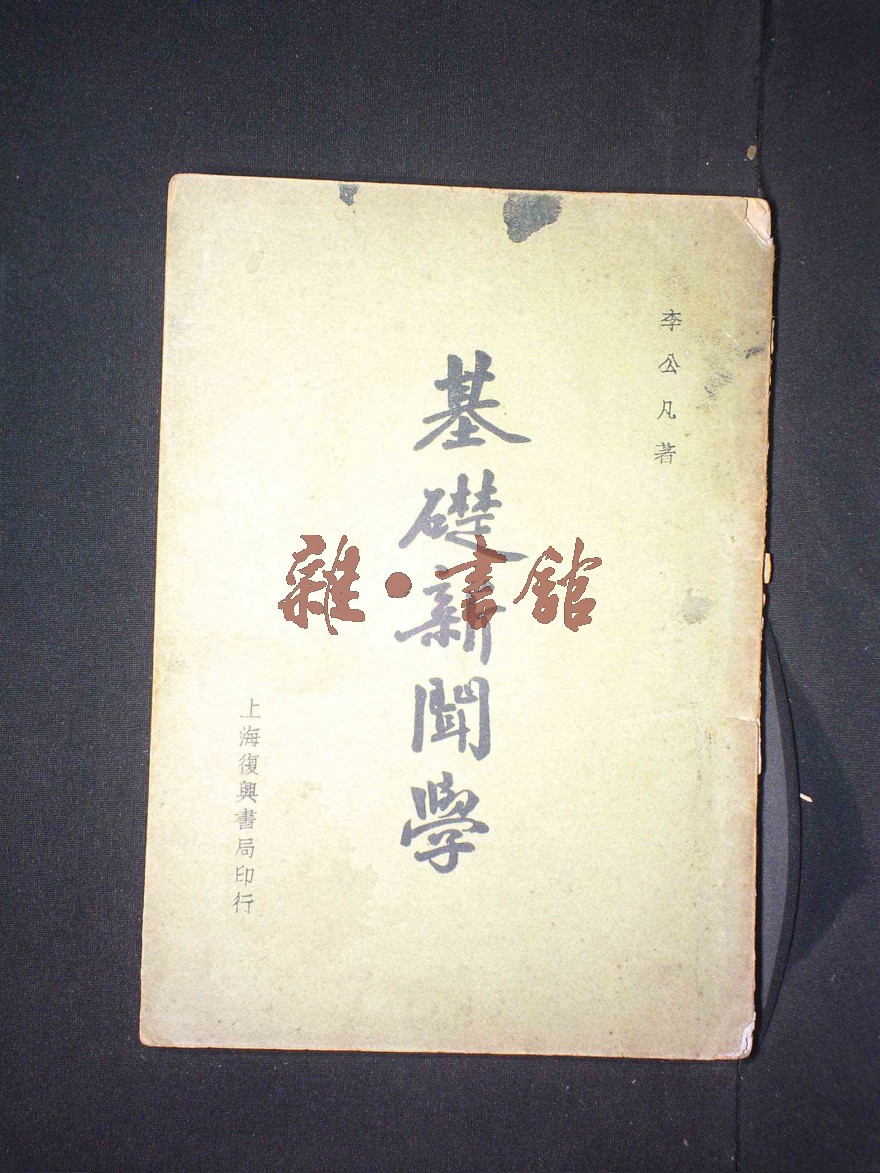 李公凡著
基礎新聞學
上海復興書局印行
雜·書館